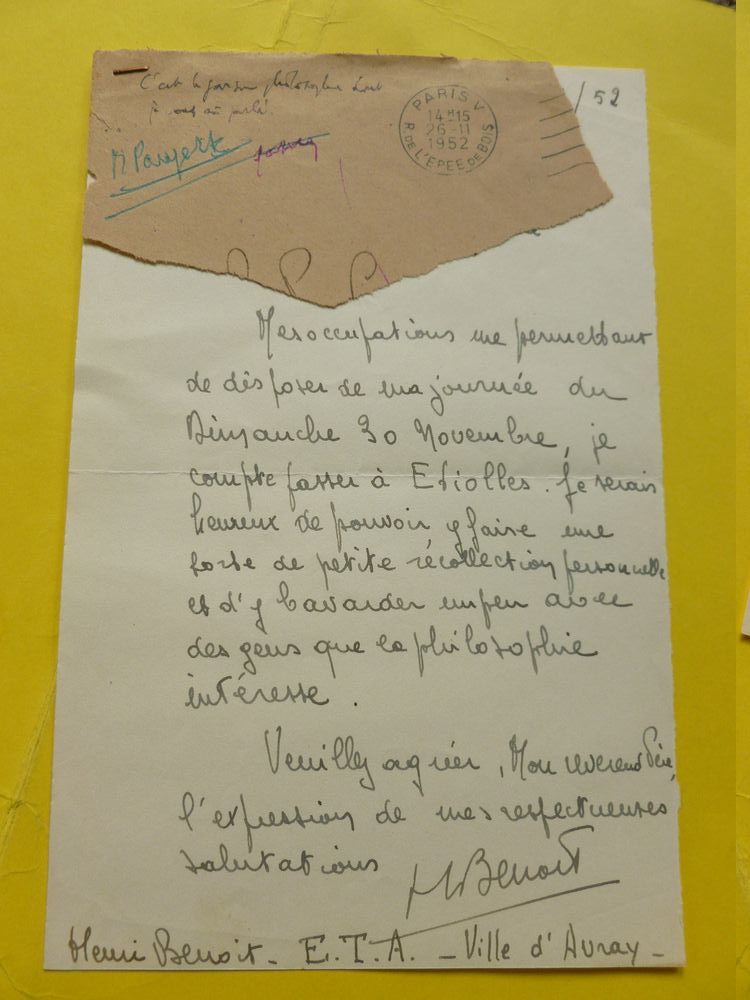 C'est le garçon philosophe dont
je vous ai parlé.
PARIS V
14H15
26-11
1952
R. DE L'EPEE DE BOIS
/52
M
Mes occupations me permettant
de disposer de ma journée du
Dimanche 30 Novembre, je
compte passer à Etiolles. Je serais
heureux de pouvoir y faire une
sorte de petite récollection personnelle
et d'y bavarder un peu avec
des gens que la philosophie
intéresse.
Veuillez agréer, Mon révérend Père,
l'expression de mes respectueuses
salutations
H Benoit
Henri Benoit - E.T.A. - Ville d'Avray -